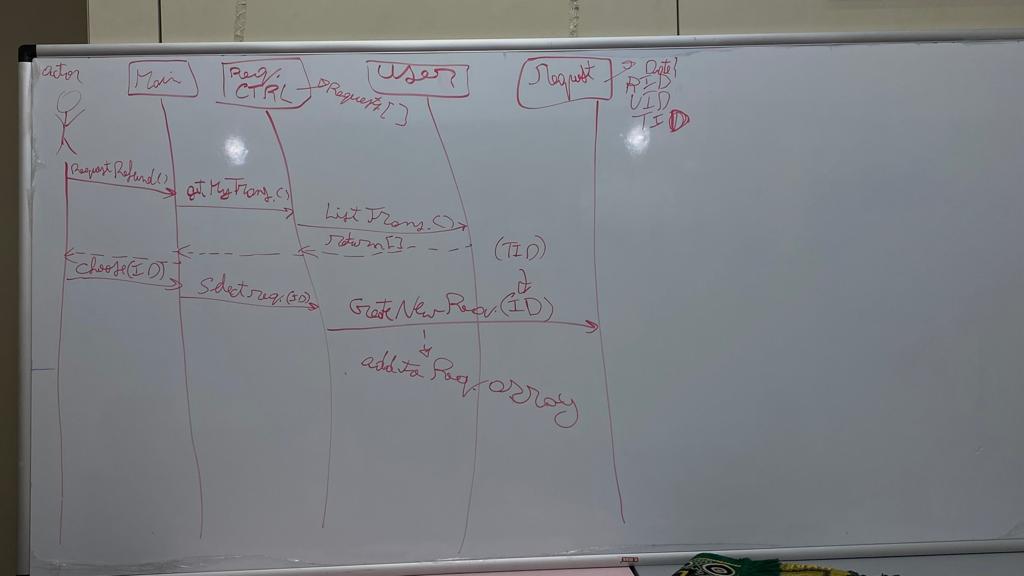 actor
Main
Req.
CTRL
Request[]
User
Request
RID
UID
TID
RequestRefund()
getMyTrans.()
List Trans.()
return[]
(TID)
choose(ID)
Select req.(ID)
Create New Req.(ID)
add to Req. array